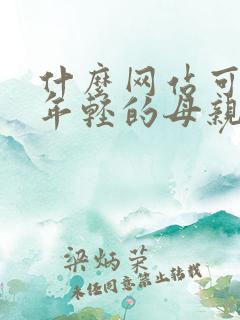 什麼网佔可
年轻的母親
梁炳荣
未经同意禁止转载